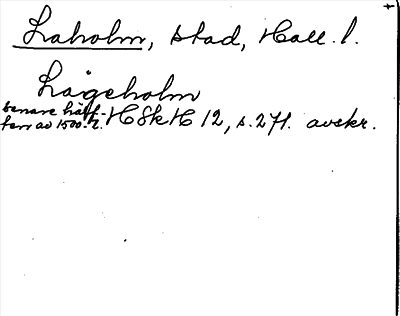 Laholm, stad, Hall. l.
Lågeholm
senare hälf-
ten av 1500-t. HSkH 12, s. 271. avskr.